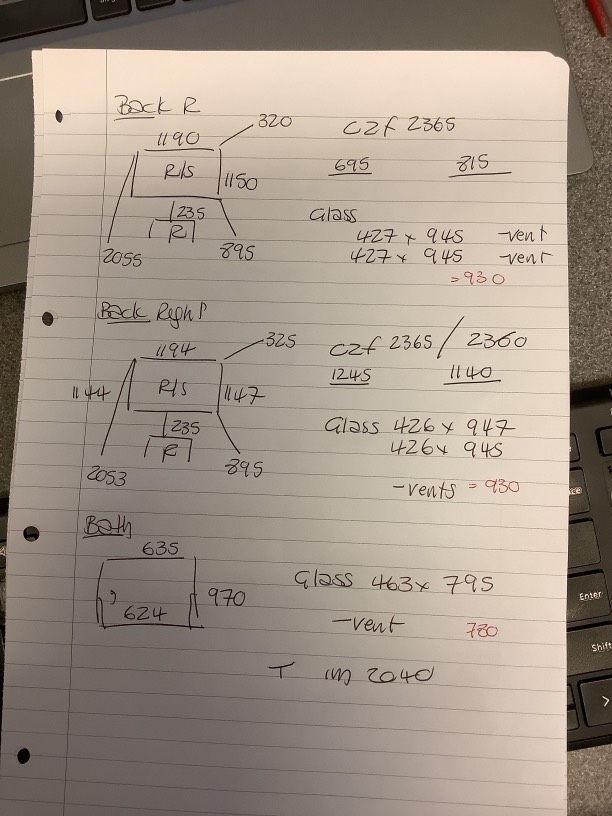 Back R
1190
320
R/S
1150
235
R
2055
895
CZF 2365
695 815
Glass
427 x 945 -vent
427 x 945 -vent
= 930
Back Right
1194
325
1144
R/S
1147
235
R
2053
895
CZF 2365 / 2360
1245 1140
Glass 426 x 947
426 x 945
-vents = 930
Bath
635
970
624
Glass 463 x 795
-vent 780
T in 2040
Enter
Shift